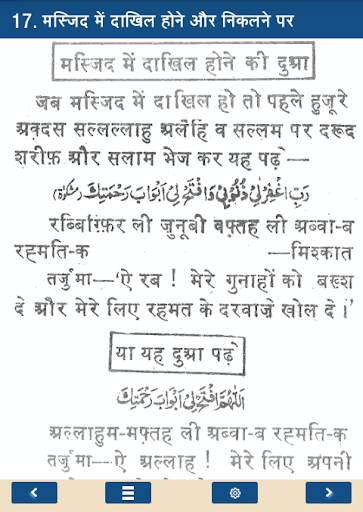 17. मस्जिद में दाखिल होने और निकलने पर
मस्जिद में दाखिल होने की दुआ
जब मस्जिद में दाखिल हो तो पहले हुजूरे
अक़दस सल्लल्लाहु अलैहि व सल्लम पर दरूद
शरीफ़ और सलाम भेज कर यह पढ़े —
رَبِّ اغْفِرْ لِيْ ذُنُوْبِيْ وَافْتَحْ لِيْ اَبْوَابَ رَحْمَتِكَ (مشكوة)
रब्बिग़्फ़िर ली जुनूबी वफ़्तह ली अब्वा-ब
रह्मति-क —मिश्कात
तर्जुमा—'ऐ रब ! मेरे गुनाहों को बख़्श
दे और मेरे लिए रहमत के दरवाज़े खोल दे ।'
या यह दुआ पढ़े
اَللّٰهُمَّ افْتَحْ لِيْ اَبْوَابَ رَحْمَتِكَ
अल्लाहुम-मफ़्तह ली अब्वा-ब रह्मति-क
तर्जुमा—ऐ अल्लाह ! मेरे लिए अपनी